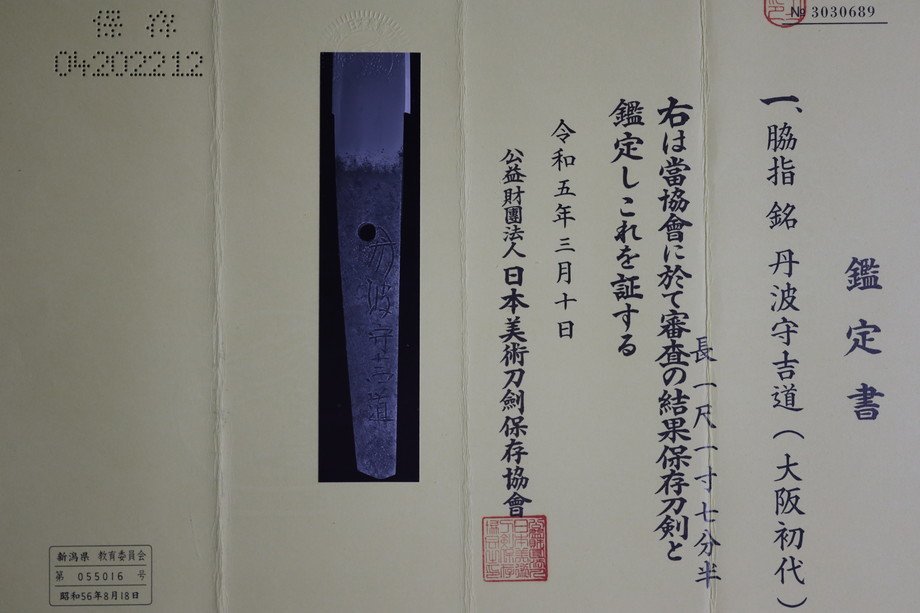 № 3030689
鑑定書
一、脇指 銘 丹波守吉道(大阪初代)
長一尺一寸七分半
右は當協會に於て審査の結果保存刀剣と
鑑定しこれを証する
令和五年三月十日
公益財團法人日本美術刀劍保存協會
丹波守吉道
保存
04202212
新潟県 教育委員会
第 055016 号
昭和56年8月18日